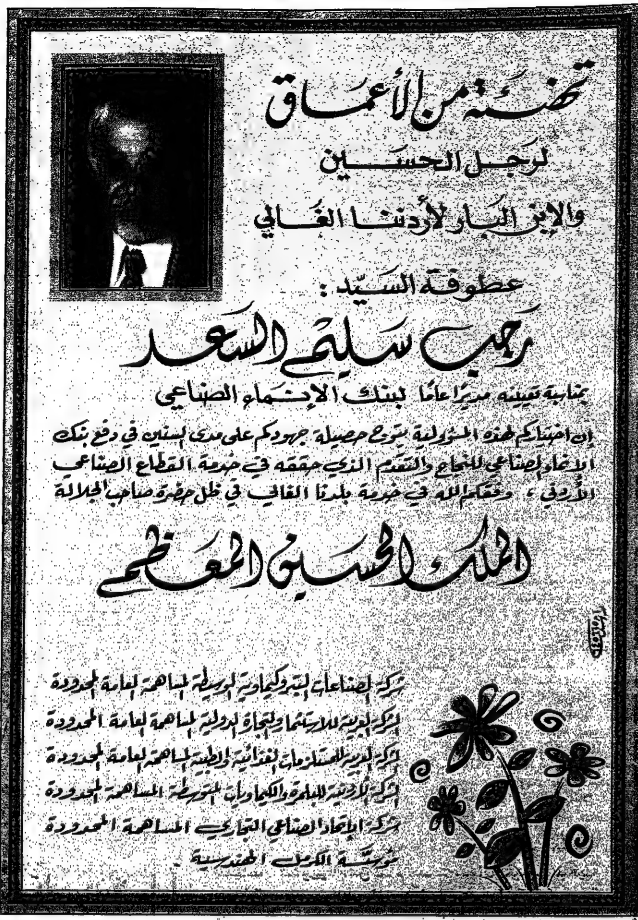 تهنئة من الأعماق
لرجل الحسين
والإبن البار لأردننا الغالي
عطوفة السيد :
رجب سليم السعد
بمناسبة تعيينه مديرًا عامًا لبنك الإنماء الصناعي
إن اختياركم لهذه المسؤولية يتوج حصيلة جهودكم على مدى في دفع بنك
الانماء الصناعي للنجاح والتقدم الذي حققه في خدمة القطاع الصناعي
الأردني ، وفقكم الله في خدمة بلدنا الغالي في ظل حضرة صاحب الجلالة
الملك الحسين المعظم
شركة الصناعات البتروكيماوية الوسيطة المساهمة العامة المحدودة
الشركة للاستثمار والتجارة الدولية المساهمة العامة المحدودة
الشركة للمستلزمات الغذائية والطبية المساهمة العامة المحدودة
الشركة والكيماويات المتوسطة المساهمة المحدودة
شركة الاتحاد الصناعي التجاري المساهمة المحدودة
مؤسسة الكرمل الهندسية